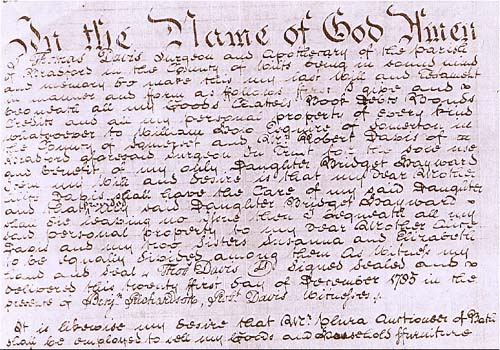 In the Name of God Amen
I Thomas Davis Surgeon and Apothecary of the Parish
of Bradford in the County of Wilts being in sound mind
and memory Do make this my last Will and Testament
in manner and form as follows first I give and
bequeath all my Goods Chattels Book Debts Bonds
Credits and all my personal property of every kind
whatsoever to William Esquire of Somerton in
the County of Somerset and Mr. Robert Davis of
Bradford aforesaid Surgeon In Trust for the sole use
and benefit of my only Daughter Bridget Hayward
Item my Will and desire is that my Dear Brother
shall have the Care of my said Daughter
and that my said Daughter Bridget Hayward
shall die leaving no Issue then I bequeath all my
said personal property to my Dear Brother
Davis and my two Sisters Susanna and Elizabeth
to be equally divided among them As Witness my
hand and Seal Thos Davis Signed Sealed and
delivered this twenty first Day of December 1785 in the
presence of Benjn. Richardson, Davis Witnesses.
It is likewise my desire that Mr. Plura Auctioneer of Bath
shall be employed to sell my Goods and household furniture